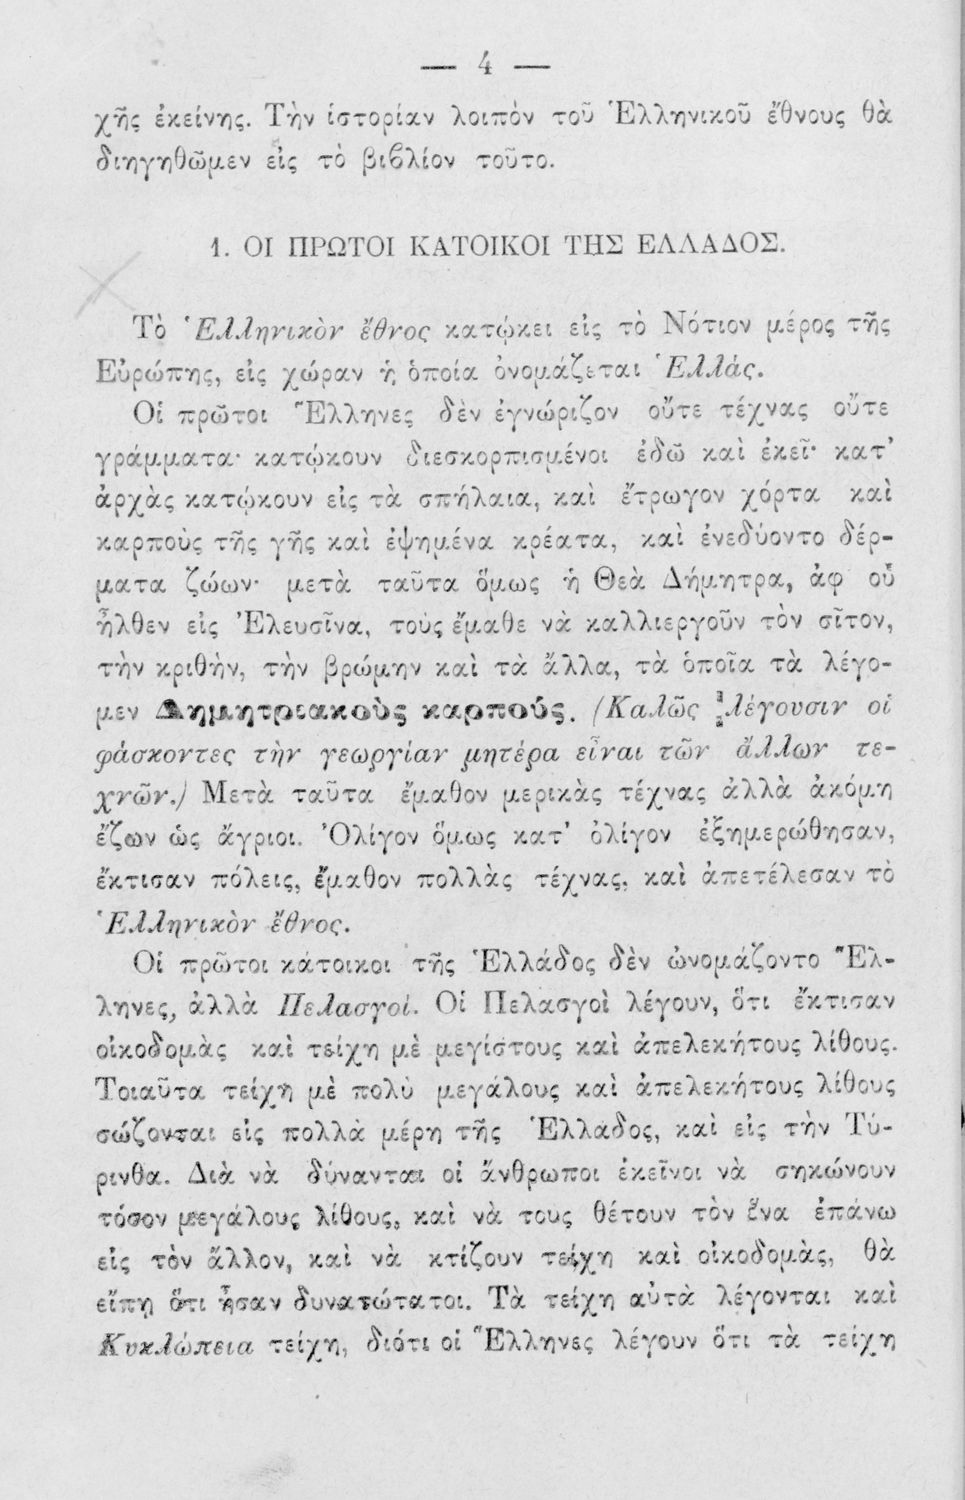 — 4 —
χῆς ἐκείνης. Τὴν ἱστορίαν λοιπὸν τοῦ Ἑλληνικοῦ ἔθνους θὰ
διηγηθῶμεν εἰς τὸ βιβλίον τοῦτο.
1. ΟΙ ΠΡΩΤΟΙ ΚΑΤΟΙΚΟΙ ΤΗΣ ΕΛΛΑΔΟΣ.
Τὸ Ἑλληνικὸν ἔθνος κατῴκει εἰς τὸ Νότιον μέρος τῆς
Εὐρώπης, εἰς χώραν ἡ ὁποία ὀνομάζεται Ἑλλάς.
Οἱ πρῶτοι Ἕλληνες δὲν ἐγνώριζον οὔτε τέχνας οὔτε
γράμματα· κατῴκουν διεσκορπισμένοι ἐδῶ καὶ ἐκεῖ· κατ’
ἀρχὰς κατῴκουν εἰς τὰ σπήλαια, καὶ ἔτρωγον χόρτα καὶ
καρποὺς τῆς γῆς καὶ ἐψημένα κρέατα, καὶ ἐνεδύοντο δέρ-
ματα ζώων· μετὰ ταῦτα ὅμως ἡ Θεὰ Δήμητρα, ἀφ οὗ
ἦλθεν εἰς Ἐλευσῖνα, τοὺς ἔμαθε νὰ καλλιεργοῦν τὸν σῖτον,
τὴν κριθὴν, τὴν βρώμην καὶ τὰ ἄλλα, τὰ ὁποῖα τὰ λέγο-
μεν Δημητριακοὺς καρπούς. (Καλῶς λέγουσιν οἱ
φάσκοντες τὴν γεωργίαν μητέρα εἶναι τῶν ἄλλων τε-
χνῶν.) Μετὰ ταῦτα ἔμαθον μερικὰς τέχνας ἀλλὰ ἀκόμη
ἔζων ὡς ἄγριοι. Ὀλίγον ὅμως κατ’ ὀλίγον ἐξημερώθησαν,
ἔκτισαν πόλεις, ἔμαθον πολλὰς τέχνας, καὶ ἀπετέλεσαν τὸ
Ἑλληνικὸν ἔθνος.
Οἱ πρῶτοι κάτοικοι τῆς Ἑλλάδος δὲν ὠνομάζοντο Ἕλ-
ληνες, ἀλλὰ Πελασγοί. Οἱ Πελασγοὶ λέγουν, ὅτι ἔκτισαν
οἰκοδομὰς καὶ τείχη μὲ μεγίστους καὶ ἀπελεκήτους λίθους.
Τοιαῦτα τείχη μὲ πολὺ μεγάλους καὶ ἀπελεκήτους λίθους
σώζονται εἰς πολλὰ μέρη τῆς Ἑλλάδος, καὶ εἰς τὴν Τύ-
ρινθα. Διὰ νὰ δύνανται οἱ ἄνθρωποι ἐκεῖνοι νὰ σηκώνουν
τόσον μεγάλους λίθους, καὶ νὰ τους θέτουν τὸν ἕνα ἐπάνω
εἰς τὸν ἄλλον, καὶ νὰ κτίζουν τείχη καὶ οἰκοδομὰς, θὰ
εἴπῃ ὅτι ἦσαν δυνατώτατοι. Τὰ τείχη αὐτὰ λέγονται καὶ
Κυκλώπεια τείχη, διότι οἱ Ἕλληνες λέγουν ὅτι τὰ τείχη